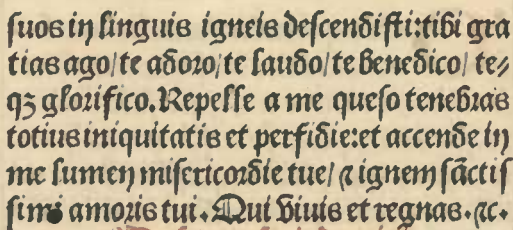 suos in linguis igneis descendisti: tibi gra
tias ago/ te adoro/ te laudo/ te benedico/ te⸗
qꝫ glorifico. Repelle a me queso tenebras
totius iniquitatis et perfidie: et accende in
me lumen misericordie tue/ ⁊ ignem sāctis
simi amoris tui. Qui viuis et regnas. ⁊c.